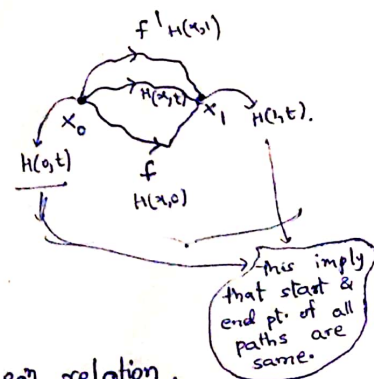 f' H(x,1)
H(x,t)
x₀
x₁
H(1,t).
H(0,t)
f
H(x,0)
this imply
that start &
end pt. of all
paths are
same.
relation.